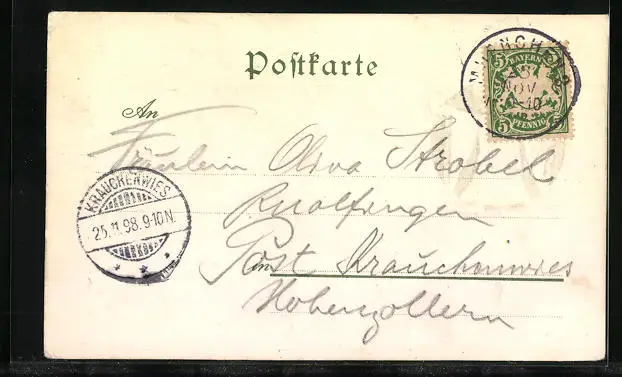 Postkarte
BAYERN
5 5
PFENNIG
MÜNCHEN
NOV
An
Fräulein Oliva Strobel
Rulfingen
Post Krauchenwies
Hohenzollern
KRAUCHENWIES
25.11.98.9-10N.